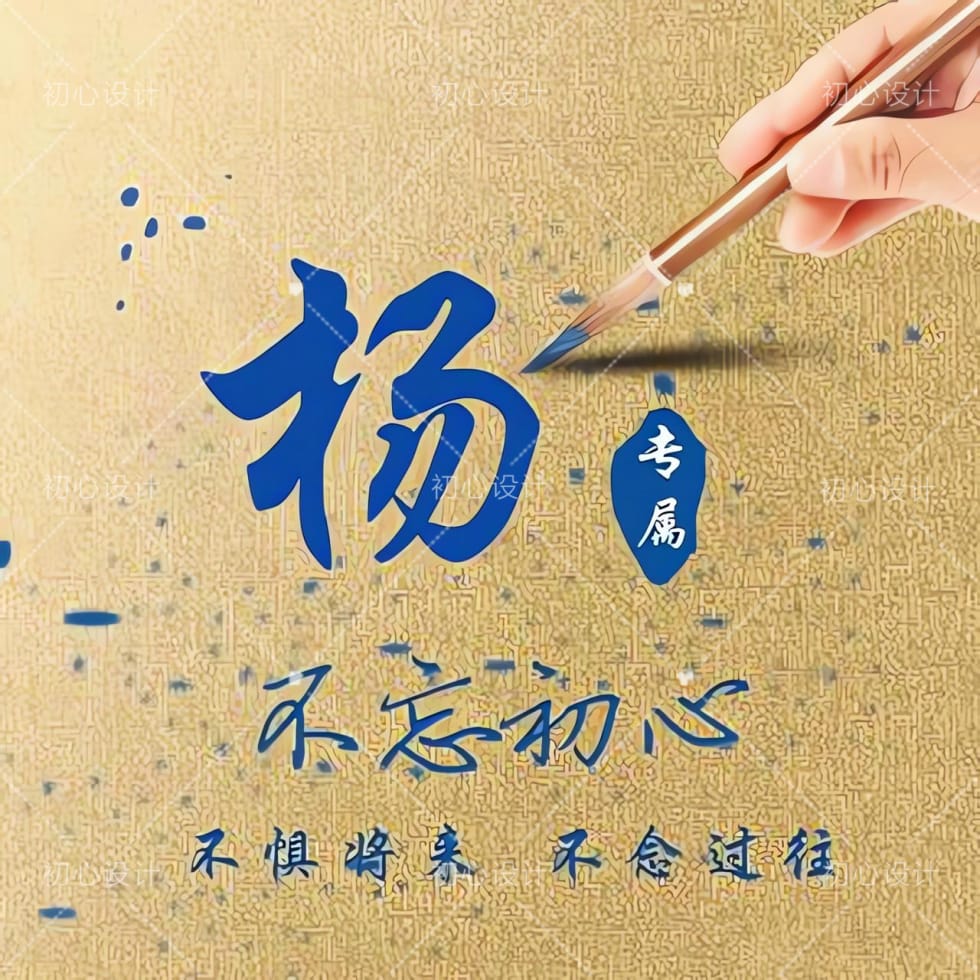 初心设计 初心设计 初心设计
杨
专属
初心设计 初心设计 初心设计
不忘初心
不惧将来 不念过往
初心设计 初心设计 初心设计